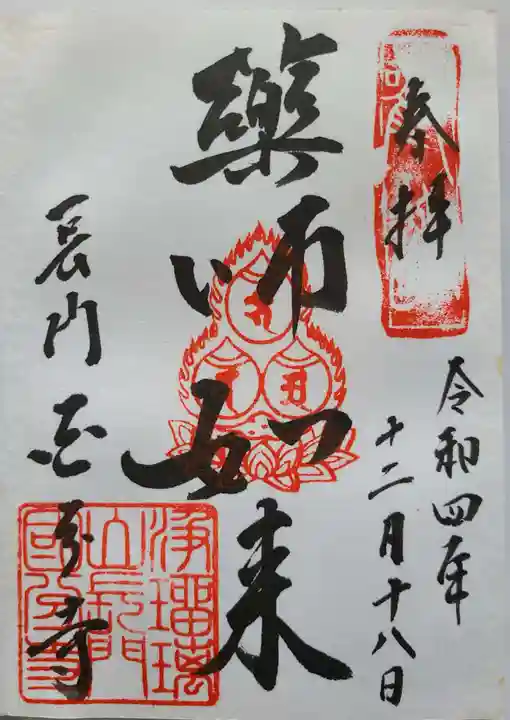 奉拝
令和四年
十二月十八日
薬師如来
長門国分寺
浄瑠璃
山長門
國分寺